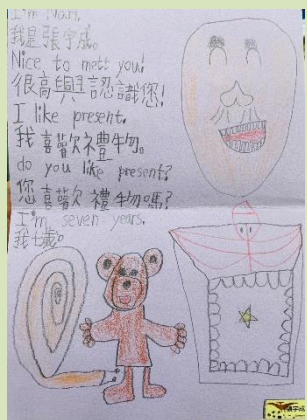 I'm Nath.
我是張宇成。
Nice, to mett you!
很高興認識您!
I like present.
我喜歡禮物。
do you like present?
您喜歡禮物嗎?
I'm seven years.
我七歲。